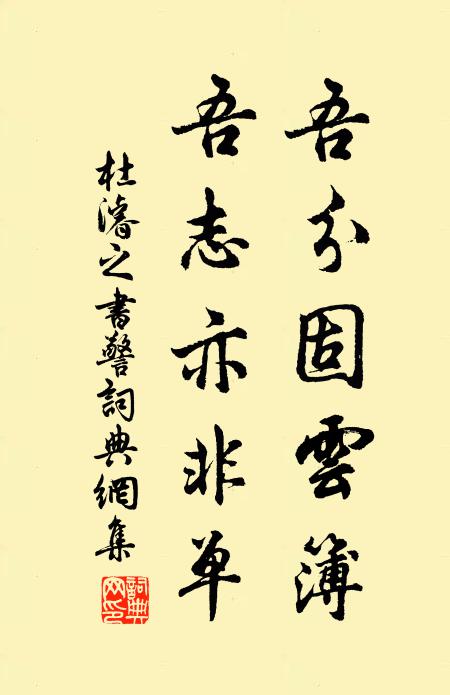 吾分固雲簿
吾志亦非单
杜濬之書警詞典網集
詞典网印